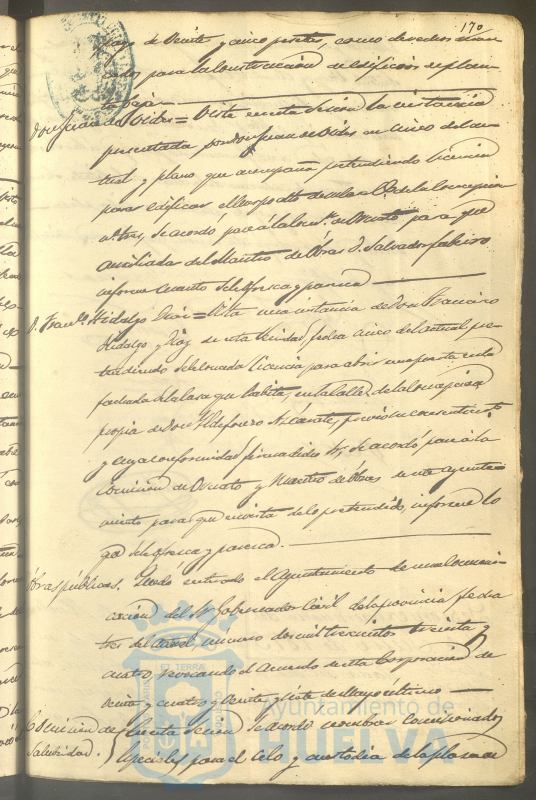 170
pago de veinte y cinco pesetas, como derechos marcados para la construccion de edificios en planta baja.
Don Juan de Vides = Vista en esta sesion la instancia
presentada por Don Juan de Vides en cinco del actual, y plano que acompaña pretendiendo licencia
para edificar el cuerpo alto de la casa Calle de la Concepcion
nº tres, se acordó pase á la Comn. de Ornato para que
auxiliada del Maestro de Obras D. Salvador
informe cuanto se le ofrezca y parezca
D. Franco. Hidalgo Diaz = Vista una instancia de Don Francisco
Hidalgo y Diaz de esta vecindad fecha cinco del actual pretendiendo se le conceda licencia para abrir una puerta en la
fachada de la casa que habita, en la calle de la Concepcion
propia de Don Ildefonso
y cuya conformidad se acordó pase á la
Comision de Ornato y Maestro de Obras de este Ayuntamiento, para que en vista de lo pretendido, informe lo
que se le ofrezca y parezca.
Obras públicas. Quedó enterado el Ayuntamiento de una comunicacion del Sr. Gobernador Civil de la provincia fecha
tres del actual, número dos mil trescientos treinta y
cuatro, revocando el Acuerdo de esta Corporacion de
veinte y cuatro y veinte y siete de Mayo último
Comision de
Salubridad. En esta sesion se acordó nombrar Comisionados
Especiales para el celo y custodia de la
Ayuntamiento de
HUELVA